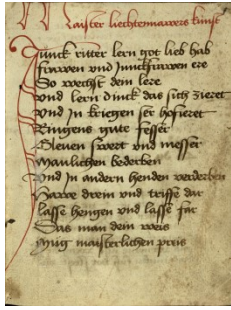 Maister liechtenawers kunst
Junck ritter lern got lieb hab
frawen vnd Junckfrawen ere
So wechst dein lere
vnd lern dinck das sich zieret
vnd In kriegen ser hofieret
Ringens gute fesser
Gleuen swert vnd messer
Manlichen bederben
vnd In andern henden verderben
Hawe drein vnd triffe dar
lasse hengen vnd lasse far
Das man dein weis
Mug maisterlichen preis